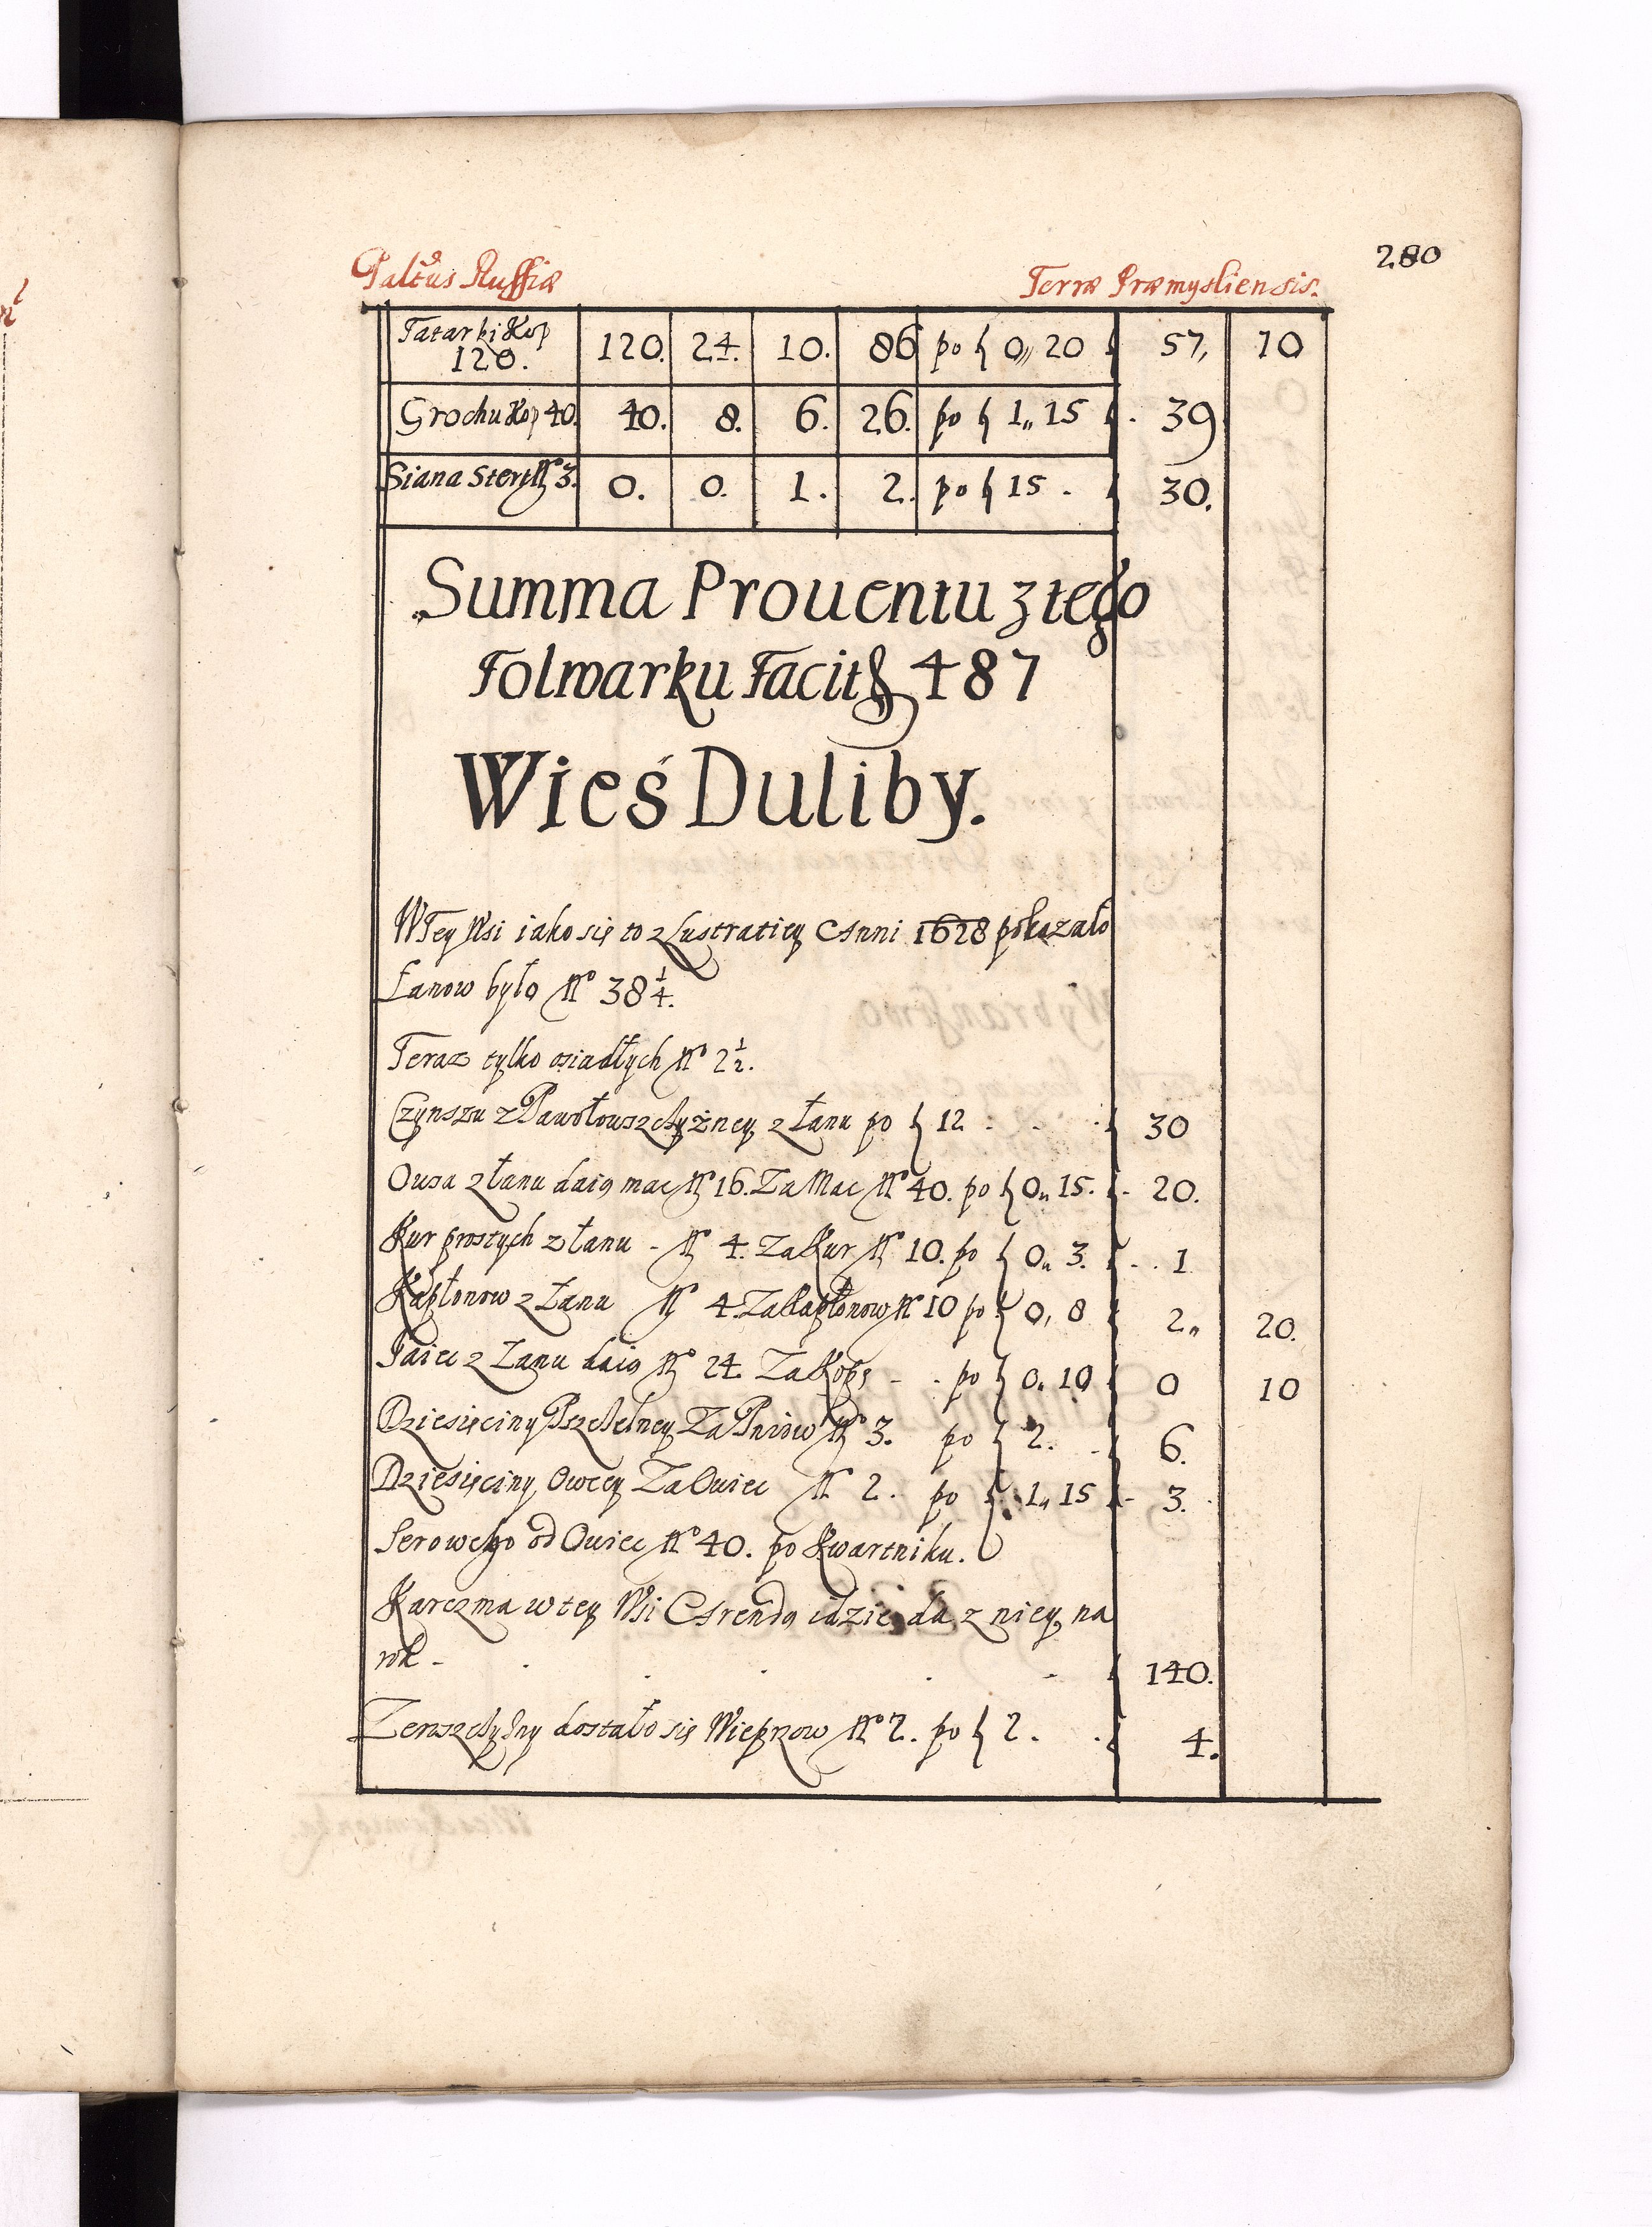 280
Paltûs Russiæ Terræ Præmysliensis.
Tatarki Kop 120. 120. 24. 10. 86 po ƒ 0,, 20 57, 10
Grochu Kop 40. 40. 8. 6. 26. po ƒ 1,, 15 39
Siana Stert No 3. 0. 0. 1. 2. po ƒ 15. 30.
Summa Prouentu z tego
Folwarku Facit ƒ 487
Wieś Duliby.
W Tey Wsi iako się to z Lustratiey Anni 1628 pokazało
Łanow było No 38 1/4.
Teraz tylko osiadłych No 2 1/2.
Czynszu z Pawołowszchyżney z łanu po ƒ 12 . . . 30
Owsa z łanu daią mac No 16. Za Mac No 40. po ƒ 0,, 15. - 20.
Kur prostych z łanu - No 4. Za Kur No 10. po ƒ 0,, 3. - . . 1
Kapłonow z Łanu No 4. Za Kapłonow No 10 po ƒ 0, 8 2,, 20.
Jaiec z Łanu daią No 24. Za Kopę - . po ƒ 0,, 10 0 10
Dziesięciny Pszchelney Za Pniow No 3. po ƒ 2. . 6.
Dziesięciny Owcey Za Owiec No 2. po ƒ 1,, 15 - 3.
Serowego od Owiec No 40. po Kwartniku.
Karczma w tey Wsi Arendą idzie da z niey na
rok - . . . . - 140.
Ze dostało się Wieprzow No 2. po ƒ 2. . 4.